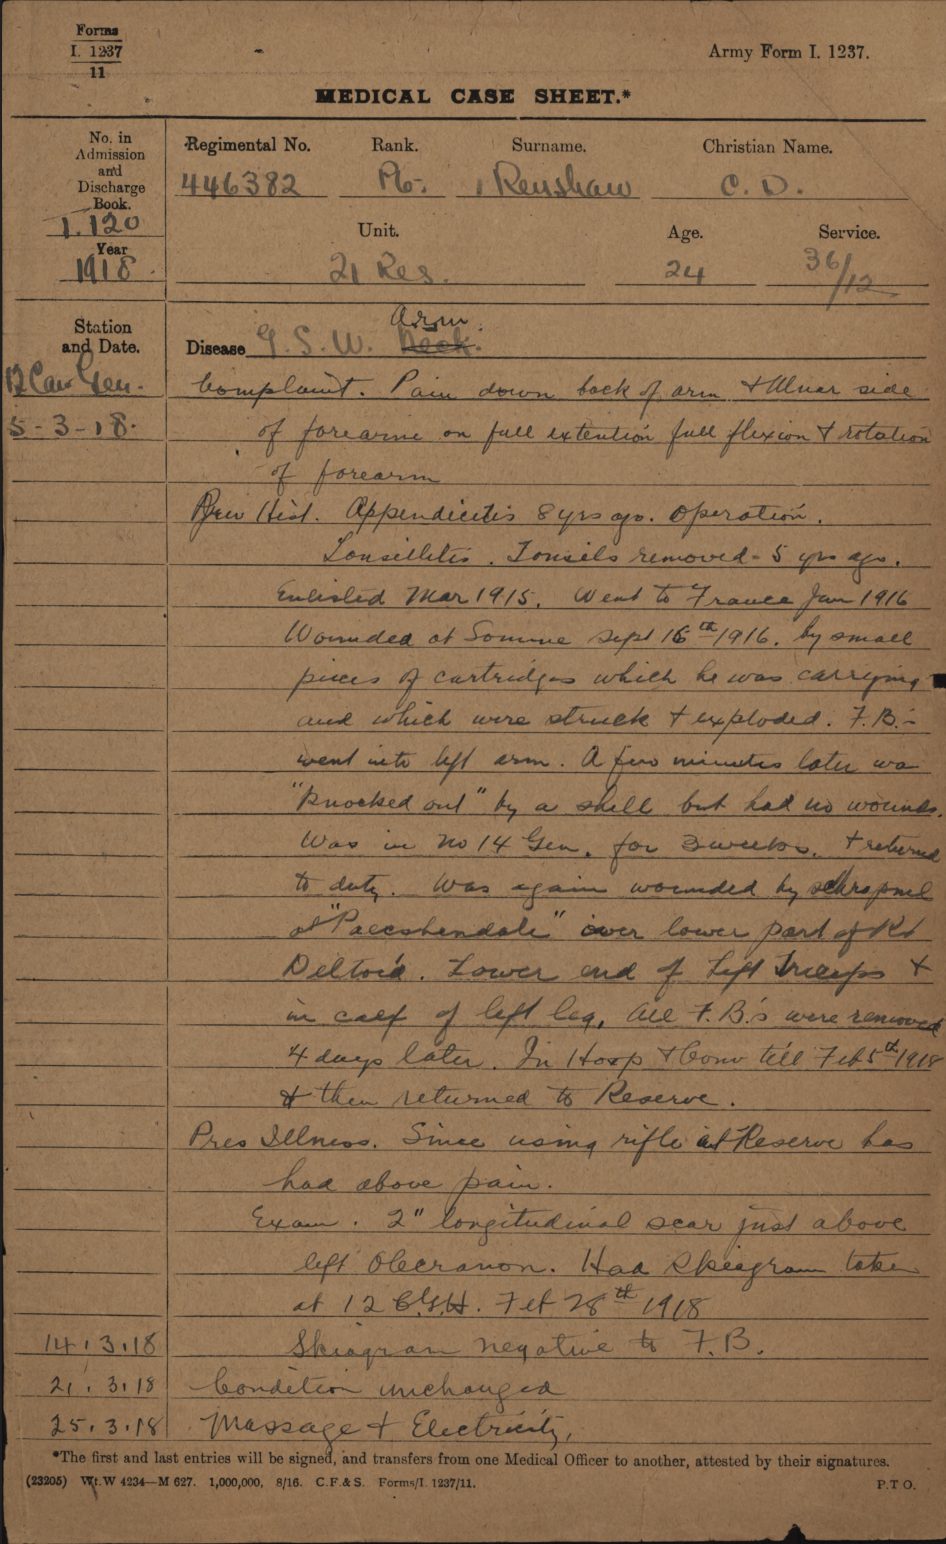 Forms
I. 1237
11
Army Form I. 1237.
MEDICAL CASE SHEET.*
No. in Admission and Discharge Book.
1.120
Year
1918.
Regimental No. Rank. Surname. Christian Name.
446382 Pte. Renshaw C. D.
Unit. Age. Service.
21 Res. 24 36/12
Station and Date.
Arm.
Disease G. S. W. Neck.
12 Can Gen. Complaint. Pain down back of arm & Ulnar side
5-3-18. of forearm on full extention full flexion & rotation
of forearm
Prev Hist. Appendicitis 8 yrs ago. Operation.
Tonsillitis. Tonsils removed - 5 yrs ago.
Enlisted Mar 1915. Went to France Jan 1916
Wounded at Somme Sept 16th 1916. by small
pieces of cartridges which he was carrying
and which were struck & exploded. F.B.'s
went into left arm. A few minutes later was
"knocked out" by a shell but had no wounds.
Was in No 14 Gen. for 3 weeks. & returned
to duty. Was again wounded by schrapnel
at "Paecshendale" over lower part of Rt
Deltoid. Lower end of Left Triceps &
in calf of left leg. All F.B.'s were removed
4 days later. In Hosp & Conv till Feb 5th 1918
& then returned to Reserve.
Pres Illness. Since using rifle at Reserve has
had above pain.
Exam. 2" longitudinal scar just above
left Olecranon. Had Skiagram taken
at 12 C.G.H. Feb 28th 1918
14.3.18 Skiagram negative to F.B.
21.3.18 Condition unchanged
25.3.18 Massage & Electricity.
*The first and last entries will be signed, and transfers from one Medical Officer to another, attested by their signatures.
(23205) Wt. W 4234—M 627. 1,000,000. 8/16. C.F.& S. Forms/I. 1237/11.
P.T O.